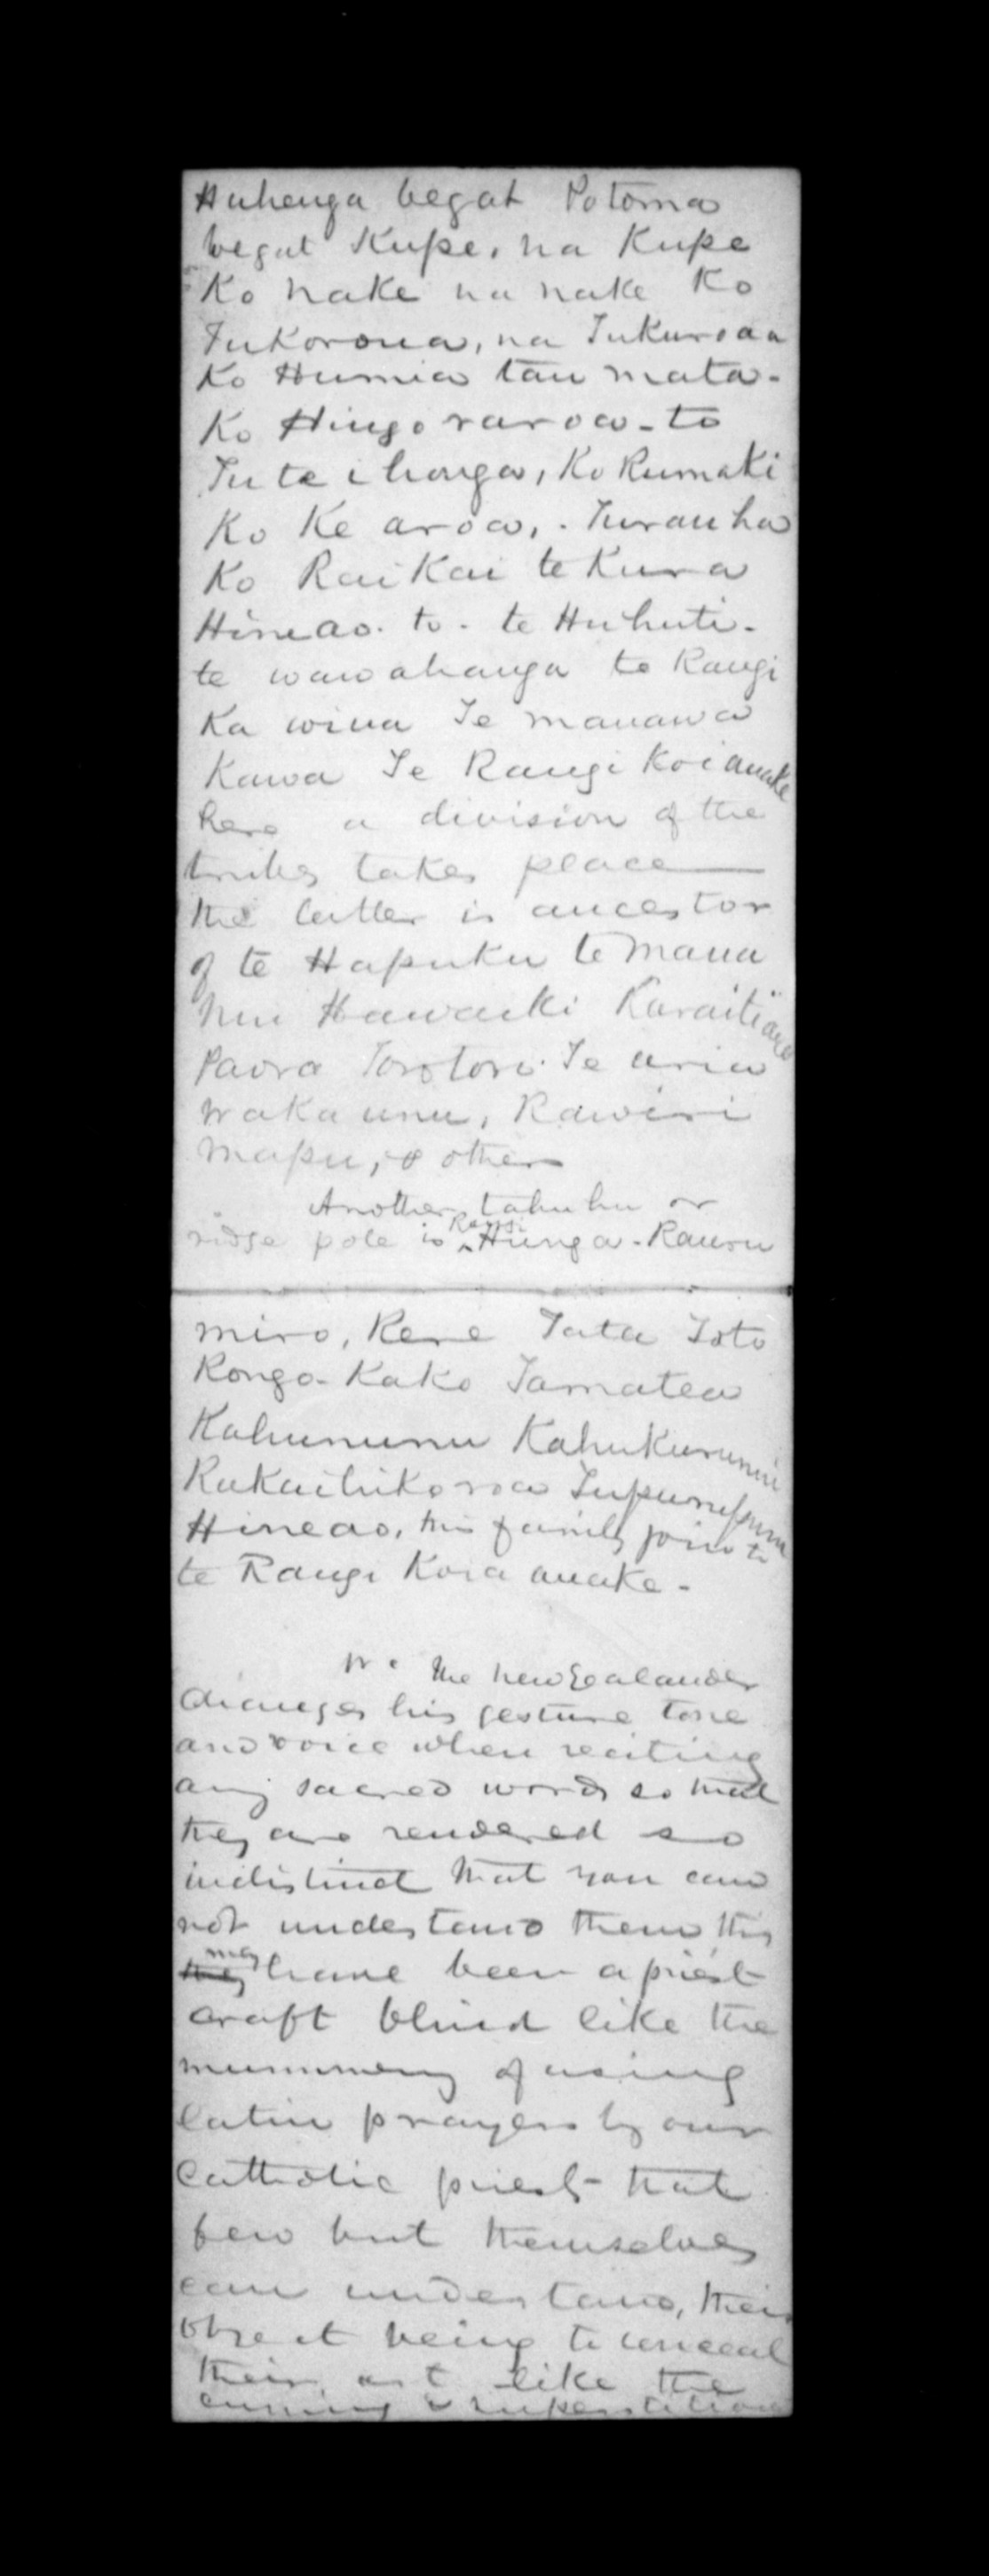 Huhenga begat Potoma
begat Kupe, na Kupe
Ko nake na nake Ko
Tukoroua, na Tukuroaa
Ko Humia tau mata-
Ko Hingo raroa - to
Tu te ihonga, Ko Rumaki
Ko Ke aroa, . Turauha
Ko Rai Kai te Kura
Hineao. to. te Huhuti-
te wawahanga te Rangi
Ka wiua Te manawa
Kawa Te Rangi Koianake
here a division of the
tribes takes place
the latter is ancestor
of te Hapuku te mana
nui Hawaiki Karaitiana
Paora Torotoro Te aria
waka unu, Rawiri
mapu, & others
Another tahuhu or
ridge pole is Rangi Hunga - Rauru
miro, Rere Tata Toto
Rongo-Kako Tamatea
Kahununu Kahukuranui
Rakaihikoroa Tupurupuru
Hineao, this family joins to
te Rangi Koia anake -
The New Zealander
changes his gesture tone
and voice when reciting
any sacred words so that
they are rendered so
indistinct that you can
not understand them this
may have been a priest
craft blind like the
mummery of using
latin prayers by our
catholic priests that
few but themselves
can understand, their
object being to conceal
their art like the
cunning & superstitious